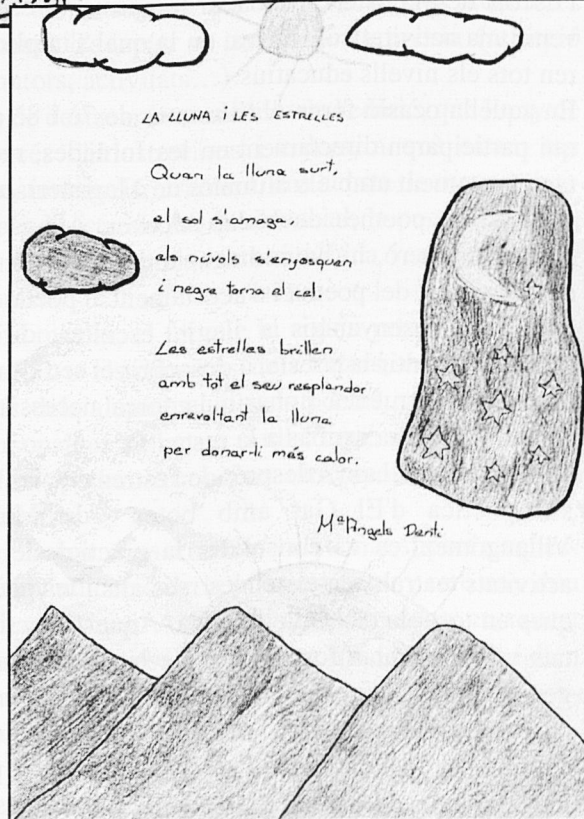 LA LLUNA i LES ESTRELLES
Quan la lluna surt,
el sol s'amaga
els núvols s'enfosquen
i negre torna el cel.
Les estrelles brillen
amb tot el seu resplandor
enrevoltant la lluna
per donar-li més calor.
Mª Àngels